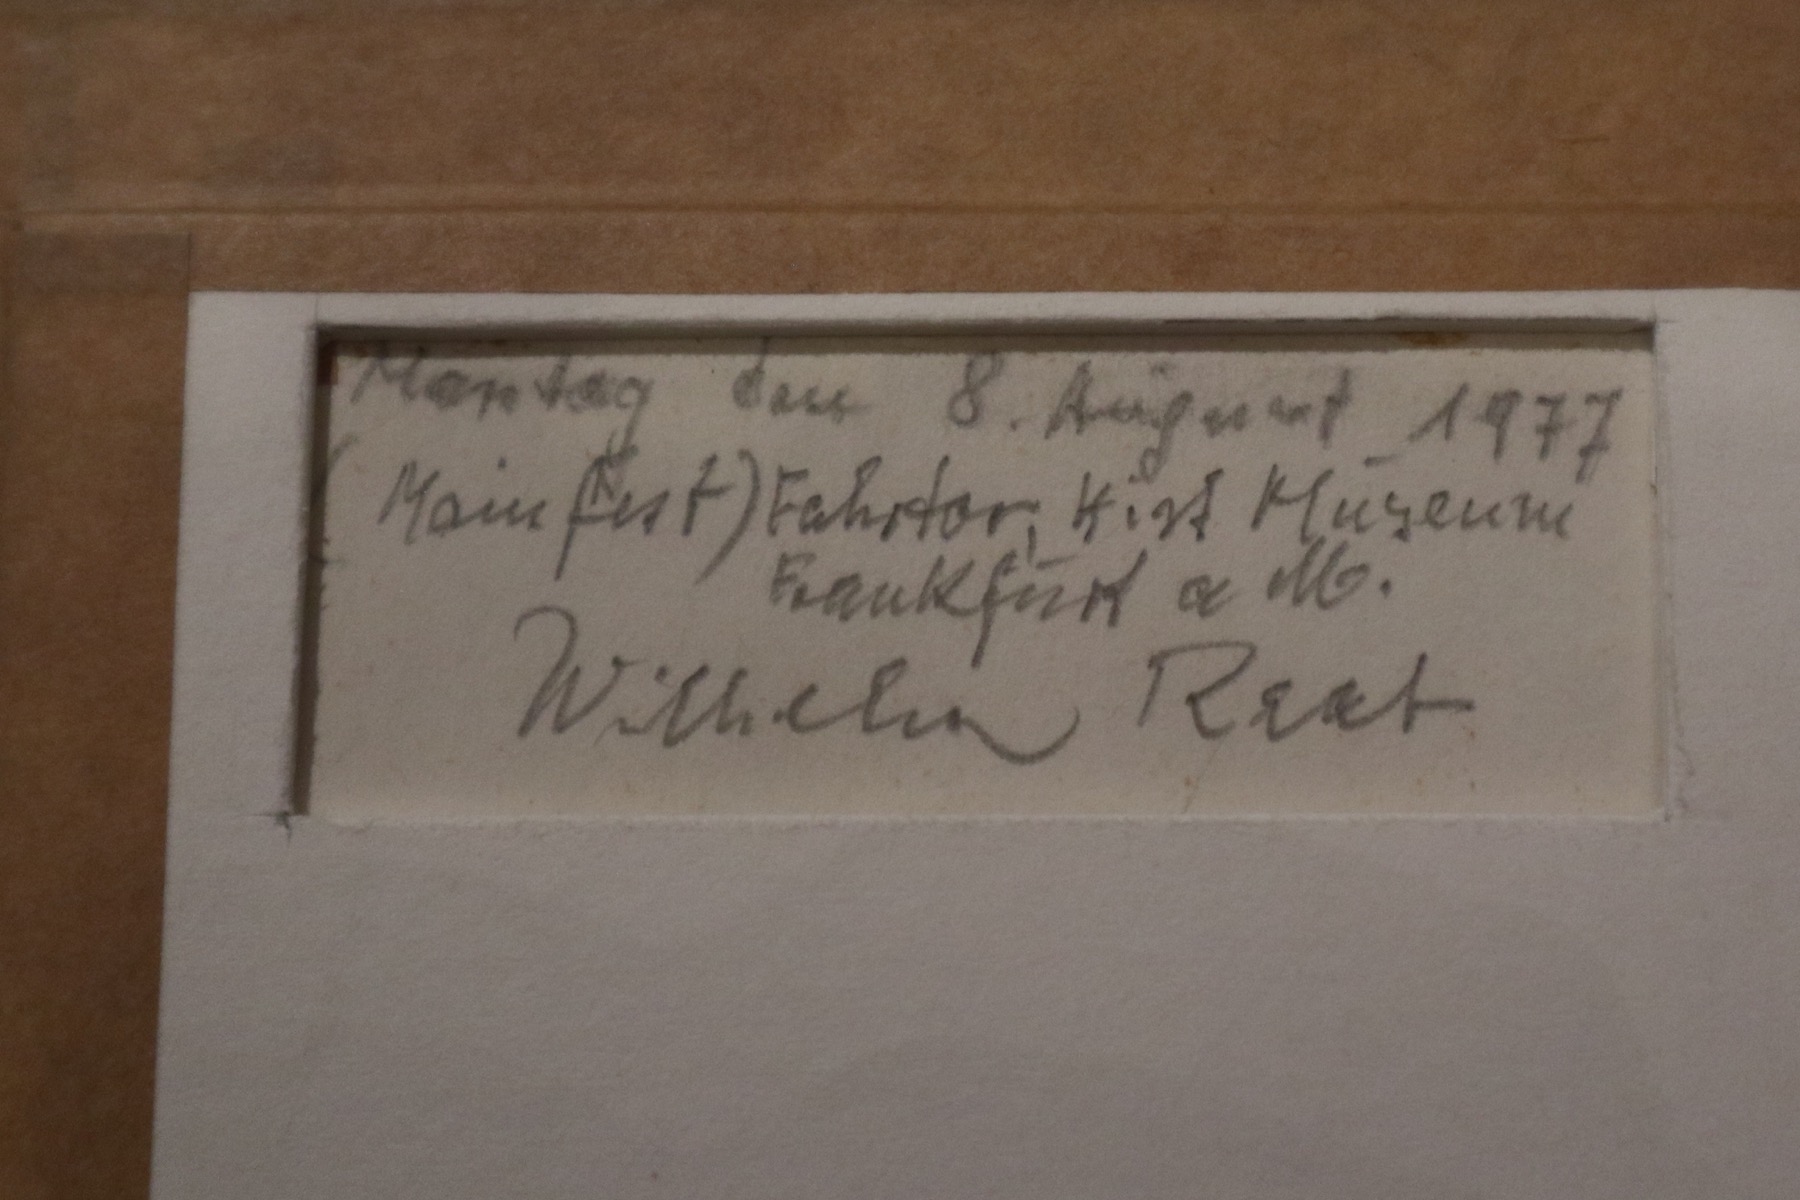 Montag den 8. August 1977
(Mainfest) Fahrtor, Hist Museum
Frankfurt a M.
Wilhelm